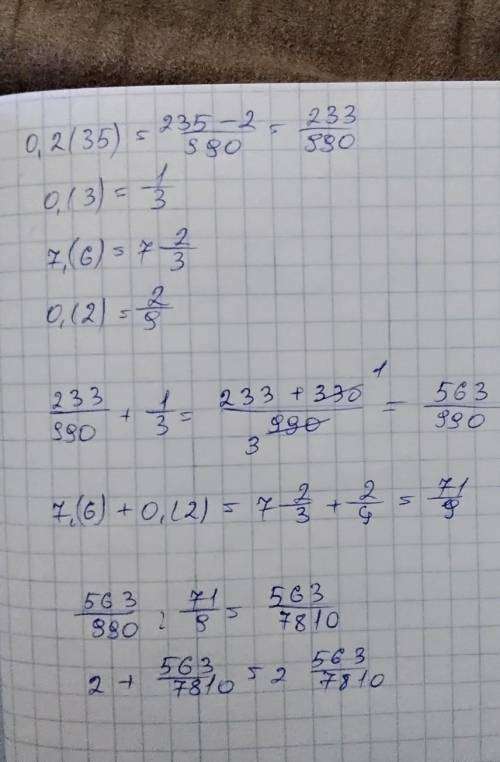 0,2(35) = (235-2)/990 = 233/990
0,(3) = 1/3
7,(6) = 7 2/3
0,(2) = 2/9
233/990 + 1/3 = (233 + 330)/990 = 563/990
1
3
7,(6) + 0,(2) = 7 2/3 + 2/9 = 71/9
563/990 : 71/9 = 563/7810
2 + 563/7810 = 2 563/7810